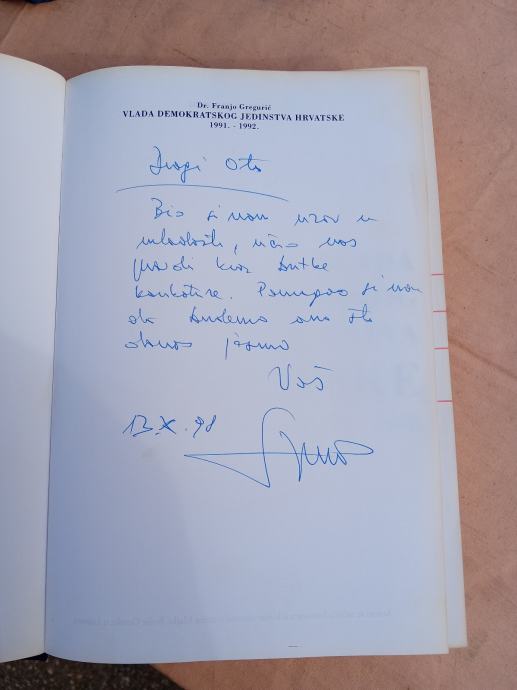 Dr. Franjo Gregurić
VLADA DEMOKRATSKOG JEDINSTVA HRVATSKE
1991. - 1992.
Dragi Oto
Bio si nam uzor u
mladosti, učio nas
pravdi kroz britke
karikature. Pomogao si nam
da budemo ono što
danas jesmo
Vaš
13.X.98